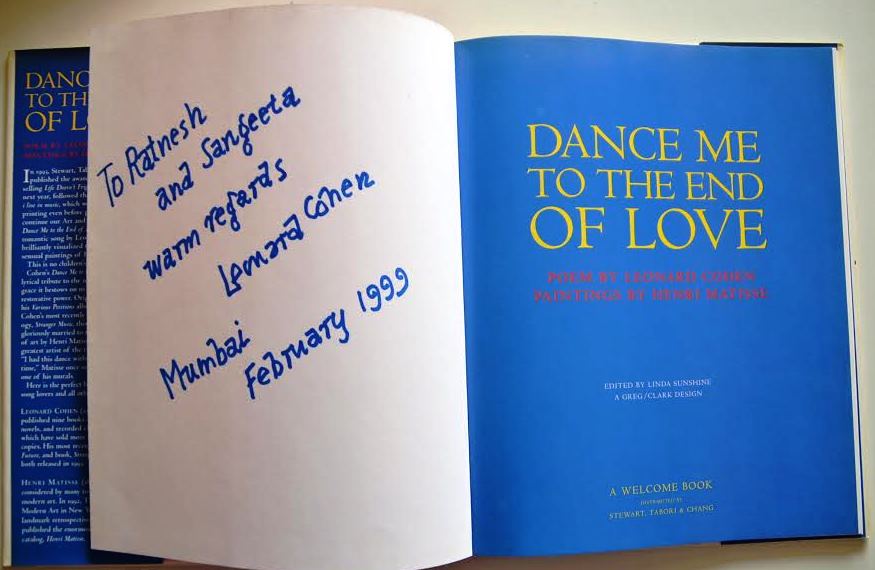 DANC
TO TH
OF L
In 1995, Stewart, Tab
published the awar
selling Life Doesn't Frig
next year, followed th
i line in music, which w
printing even before p
continue our Art and
Dance Me to the End of
romantic song by Leo
brilliantly visualized
sensual paintings of
This is no children
Cohen's Dance Me to
lyrical tribute to the
grace it bestows on
restorative power. Orig
his Various Positions alb
Cohen's most recent
ogy, Stranger Music, thi
gloriously married to
of art by Henri Matis
greatest artist of the
"I had this dance with
time," Matisse once
one of his murals.
Here is the perfect
song lovers and all
LEONARD COHEN
published nine book
novels, and recorded
which have sold more
copies. His most rece
Future, and book, Stran
both released in 1993
HENRI MATISSE
considered by many
modern art. In 1992, T
Modern Art in New Y
landmark retrospectiv
published the enormo
catalog, Henri Matisse.
To Ratnesh
and Sangeeta
warm regards
Leonard Cohen
Mumbai
February 1999
DANCE ME
TO THE END
OF LOVE
POEM BY LEONARD COHEN
PAINTINGS BY HENRI MATISSE
EDITED BY LINDA SUNSHINE
A GREG/CLARK DESIGN
A WELCOME BOOK
DISTRIBUTED BY
STEWART, TABORI & CHANG